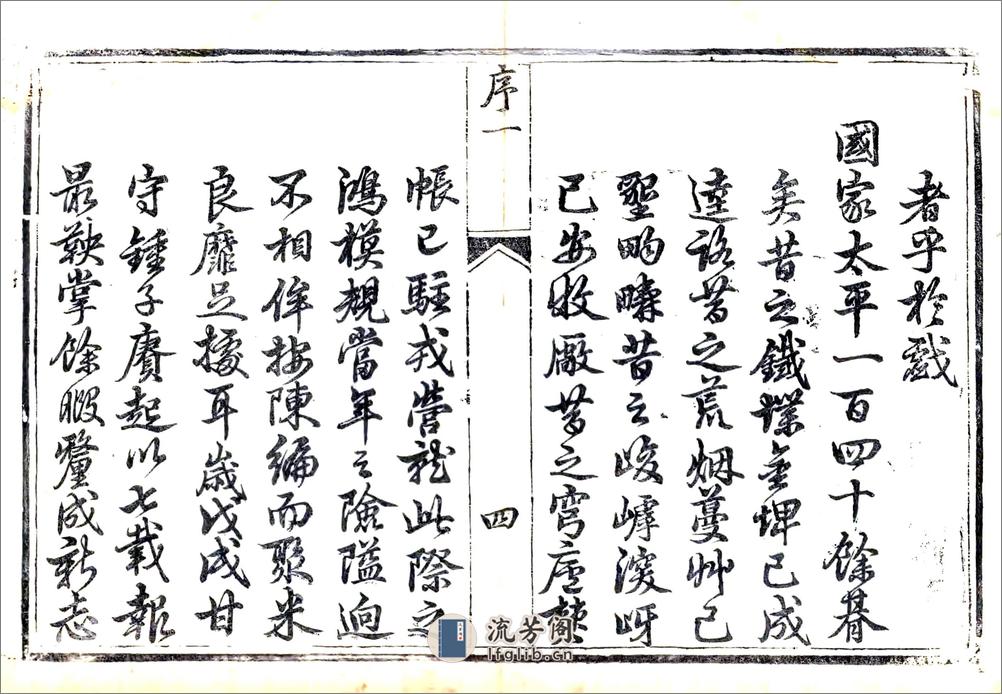 者乎於戲
國家太平一百四十餘朞
矣昔之鐵堞金埤已成
達路昔之荒烟蔓艸已
墾畇疇昔之峻嶂濠呀
已安牧廠昔之穹廬
帳已駐戎營就此際之
鴻模規當年之險隘迥
不相侔按陳編而聚米
良靡足據耳歲戊戌甘
守鍾子賡起以七載報
最鞅掌餘暇釐成新志
序一
四
流芳阁
lfglib.cn